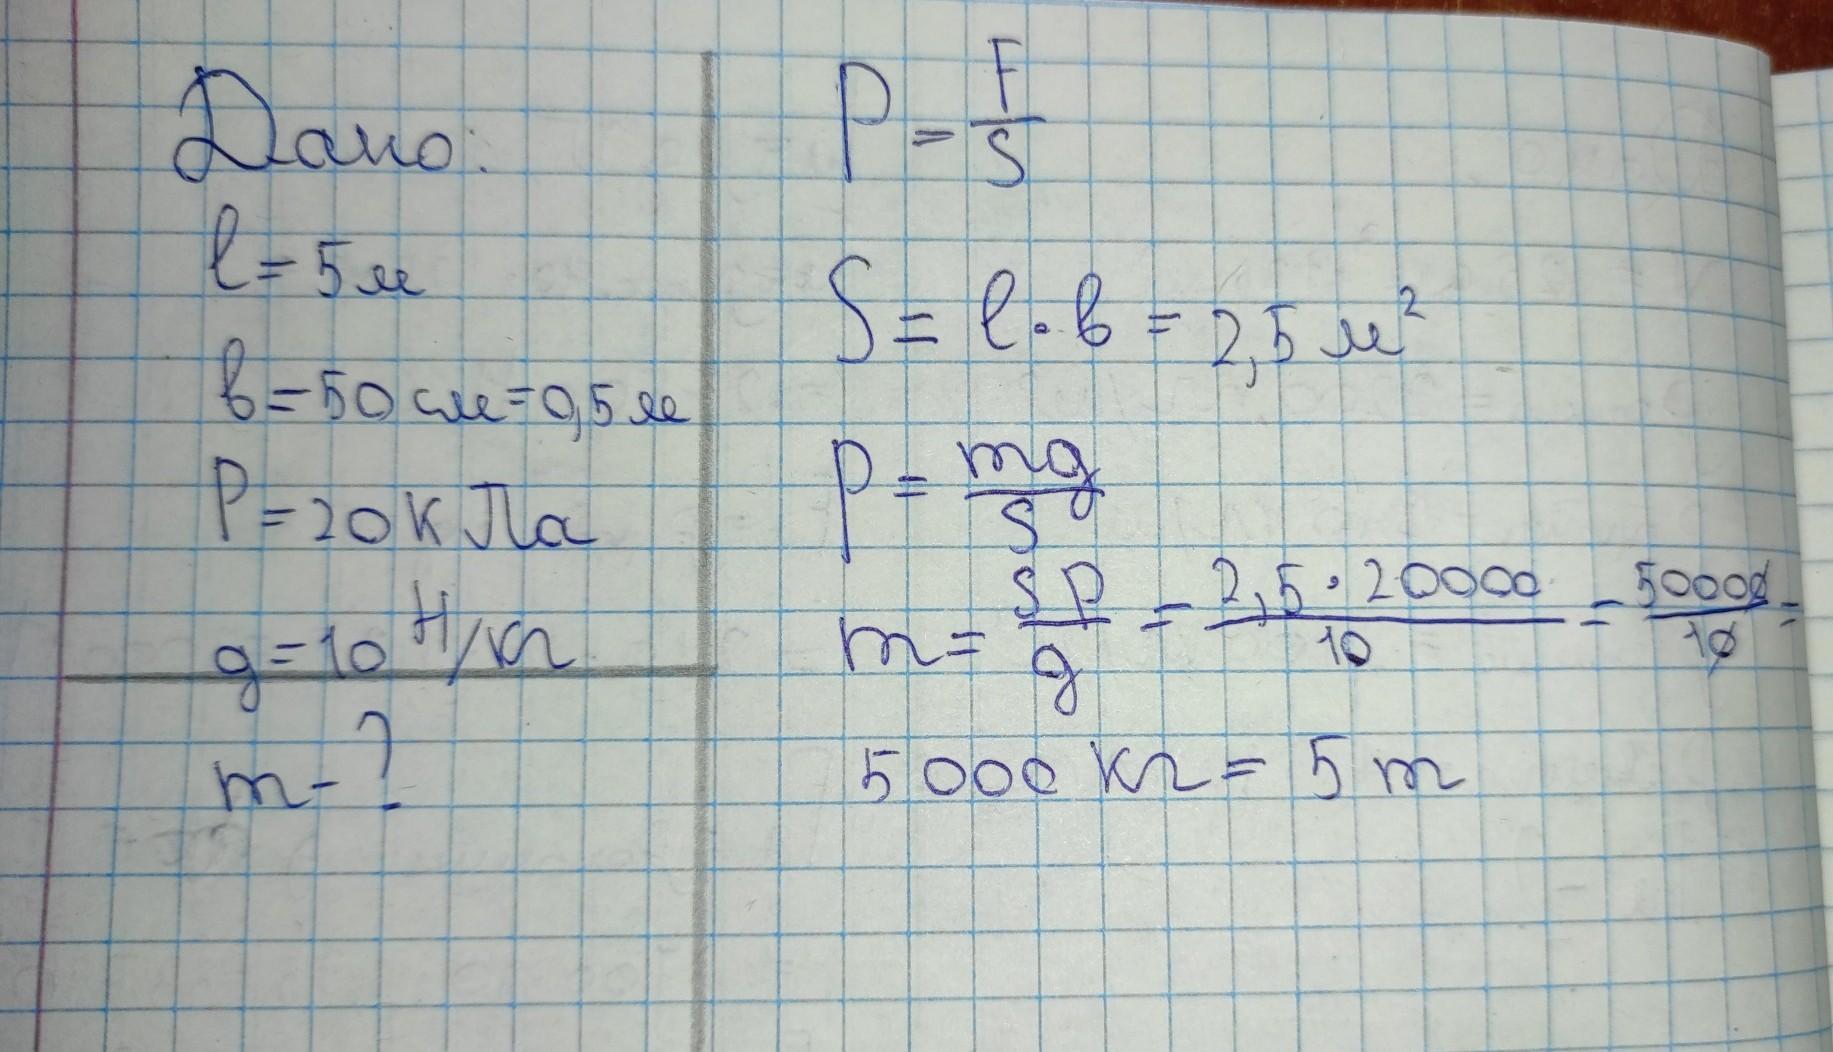 Дано:
l = 5 м
в = 50 см = 0,5 м
P = 20 к Па
g = 10 Н/кг
m - ?
P = F/S
S = l · в = 2,5 м²
P = mg/S
m = SP/g = 2,5 · 20000/10 = 50000/10 =
5000 кг = 5 т